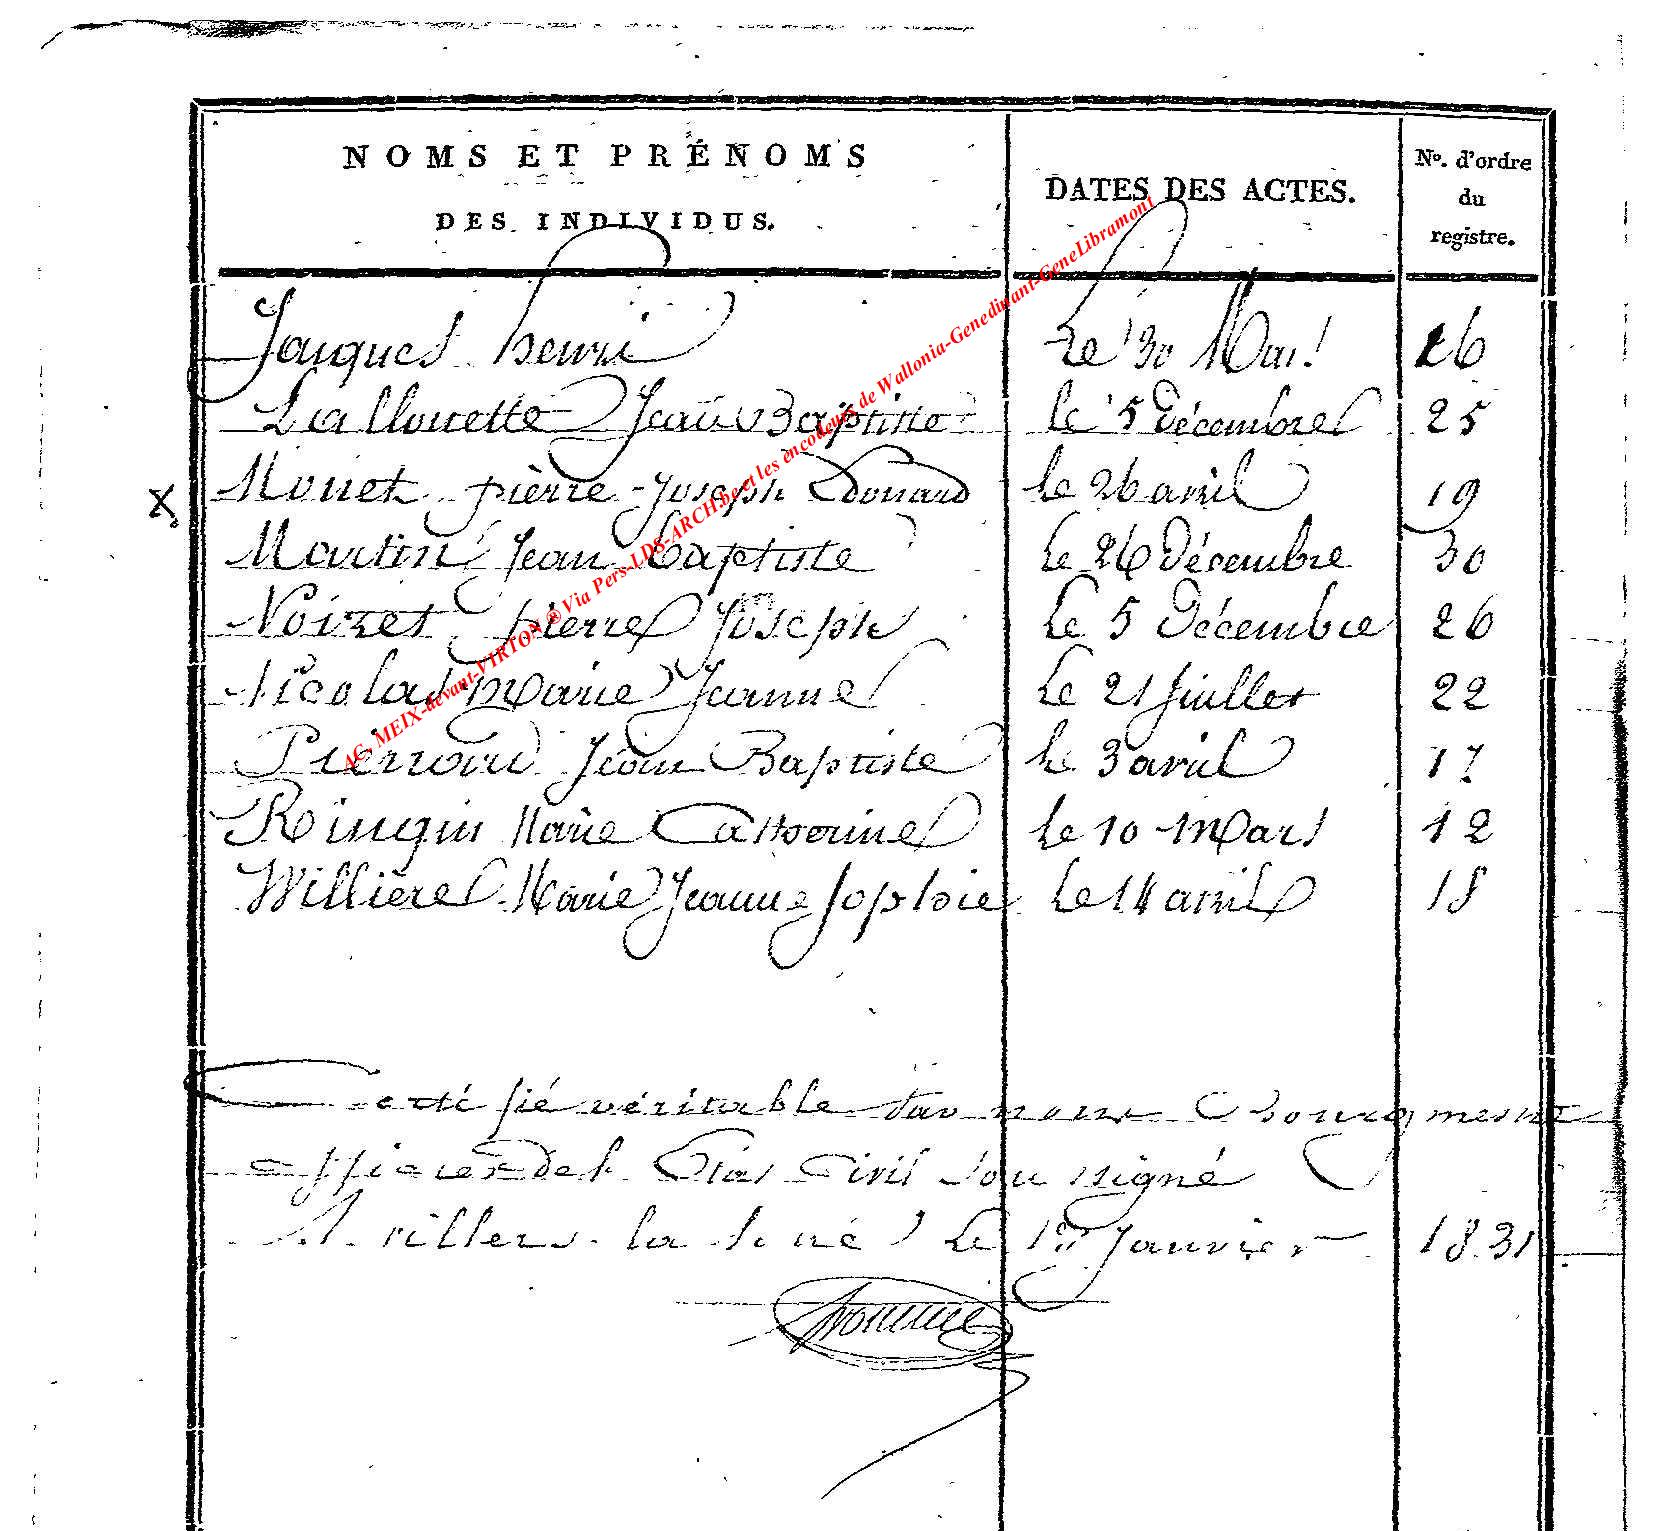 NOMS ET PRÉNOMS
DES INDIVIDUS.
DATES DES ACTES.
No. d'ordre
du
registre.
Jacques henri Le 30 Mai 16
Lallouette Jean Baptiste le 5 Décembre 25
X Monet pierre Joseph Edouard le 26 avril 19
Martin Jean baptiste Le 26 Décembre 30
Noizet pierre Joseph Le 5 Décembre 26
Nicolas Marie Jeanne Le 21 Juillet 22
Pierrard Jean Baptiste le 3 avril 17
Ringin Marie Catherine le 10 Mars 12
Williere Marie Jeanne Sophie Le 14 avril 18
Certifié véritable par nous Bourgmestre
officier de l'Etat Civil Soussigné
A villers la loué Le 1er Janvier 1831
AC. MEIX-devant-VIRTON ® Via Pers-LDS-ARCH.be et les encodeurs de Wallonia-Genedinant-GeneLibramont